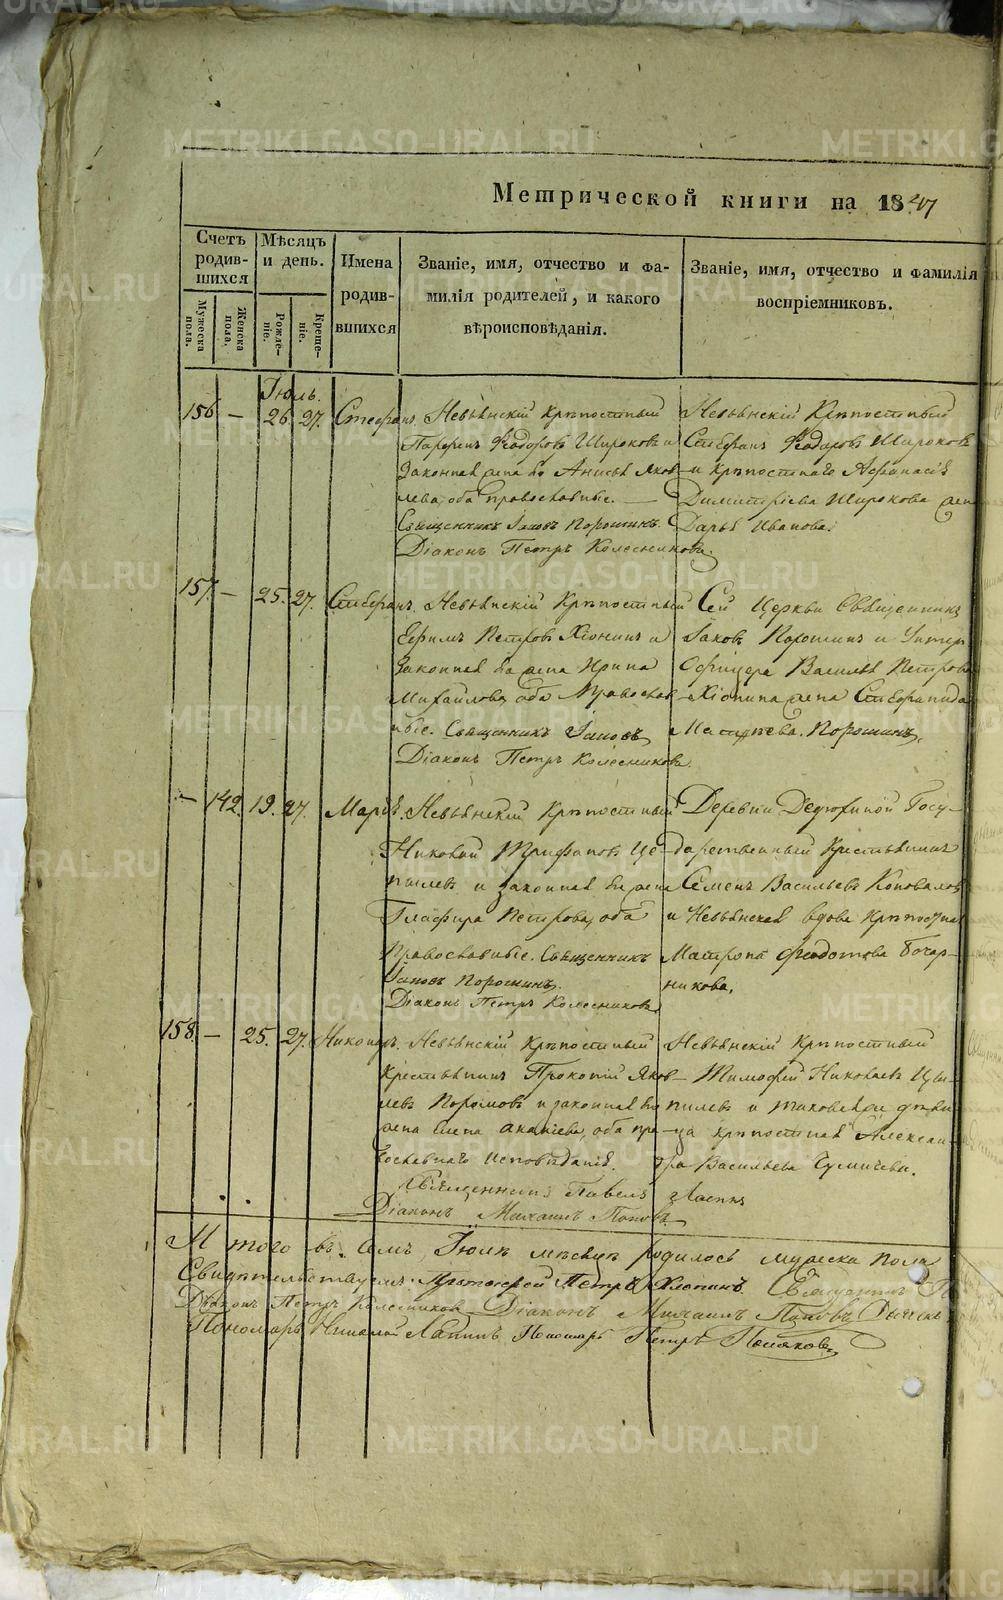 Метрической книги на 1847
Счетъ родив-шихся
Мѣсяцъ и день.
Имена родив-вшихся
Званіе, имя, отчество и фа-
милія родителей, и какого
вѣроисповѣданія.
Званіе, имя, отчество и фамилія
воспріемниковъ.
Мужеска пола.
Женска пола.
Рожде-ніе.
Креще-ніе.
Іюль.
156 — 26. 27. Стефанъ. Невьянскій крѣпостный
Парфенъ Ѳедоровъ Широковъ и
законная жена его Анисья Яков-
лева, оба православные. —
Священникъ Іаковъ Порошинъ.
Діаконъ Петръ Колесниковъ.
Невьянскій Крѣпостный
Стефанъ Ѳедоровъ Широковъ
и крѣпостнаго Афанасія
Димитріева Широкова жена
Дарья Иванова.
157. — 25. 27. Стефанъ. Невьянскій Крѣпостный
Ефимъ Петровъ Хіонинъ и
законная его жена Ирина
Михайлова, оба Православ-
ные. Священникъ Іаковъ
Діаконъ Петръ Колесниковъ.
Сей Церкви Священникъ
Іаковъ Порошинъ и Унтер
Офицера Василья Петрова
Хіонина жена Стефанида
Матвѣева. Порошинъ.
— 142. 19. 27. Марья. Невьянскій Крѣпостный
Николай Трифановъ Це-
пилевъ и законная его жена
Глафира Петрова, оба
Православные. Священникъ
Іаковъ Порошинъ.
Діаконъ Петръ Колесниковъ
Деревни Дедюхиной Госу-
дарственный Крестьянинъ
Семенъ Васильевъ Коноваловъ
и Невьянская вдова Крѣпостная
Матрона Ѳеодотова Бочар-
никова.
158. — 25. 27. Никонъ. Невьянскій Крѣпостный
Крестьянинъ Прокопій Яков-
левъ и законная его
жена Елена оба пра-
вославнаго исповѣданія.
Священникъ Павелъ Лапинъ
Діаконъ Михаилъ Поповъ.
Невьянскій Крѣпостный
Тимофей Николаевъ Цы-
пилевъ и таковая же дѣви-
ца крѣпостная Алексан-
дра Васильева
Итого въ семъ Іюлѣ мѣсяцѣ родилось мужеска пола
Свидѣтельствуемъ: Протоіерей Петръ Хлопинъ.
Діаконъ Петръ Колесниковъ Діаконъ Михаилъ Поповъ
Пономарь Николай Лапинъ, Пономарь Петръ Поляковъ